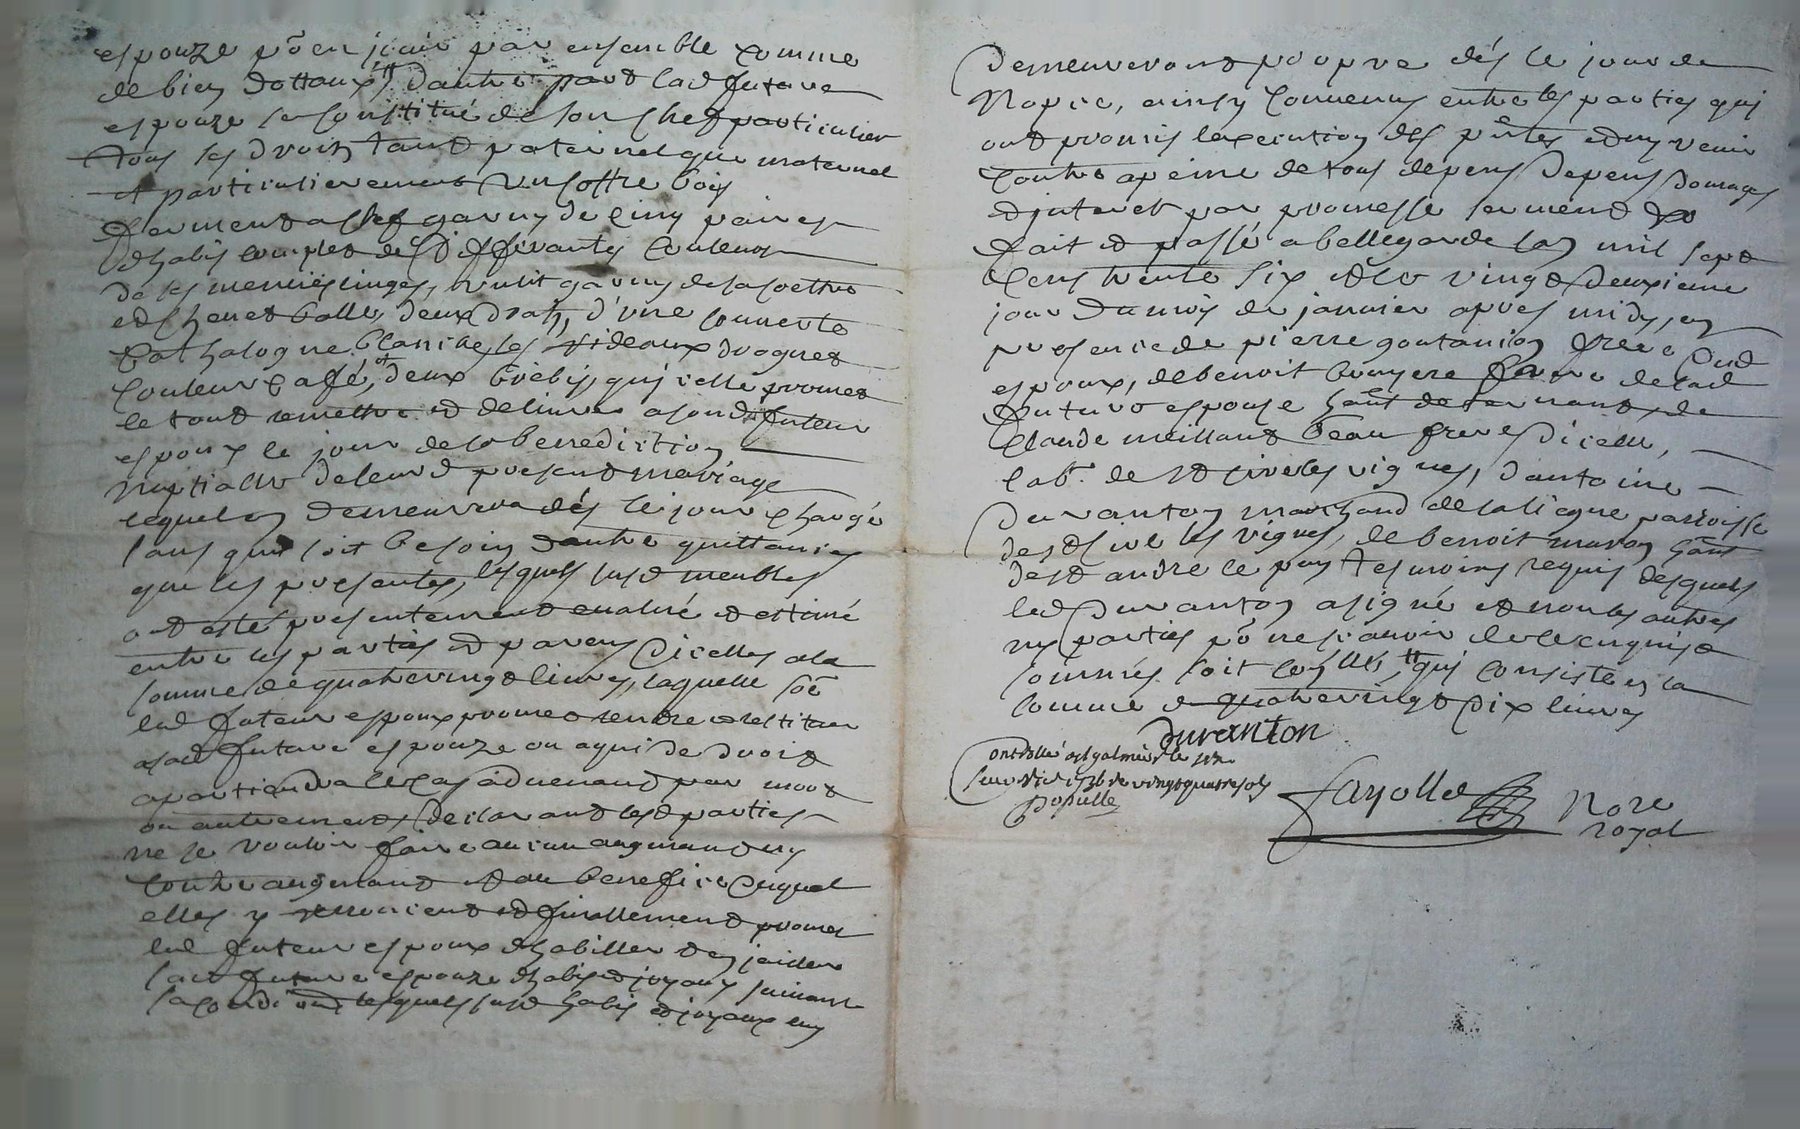 espouze põ en jouir par ensemble comme
de bien dottaux, dautre part lad future
espouze se constitué de son chef particulier
tous ses droits tant paternel que maternel
et particulierement un coffre bois
fermant a clef garny de cinq paires
dhabis complet de differants couleurs
de ses menües linges, un lit garny de sa coettre
et chevet balle, deux draps, d'une couverte
Cathalogne blanche, les rideaux droguet
couleur caffé, et deux brebis, qui celle promet
le tout remettre et delivrer a sond futeur
espoux le jour de la benediction
nuptialle de leurd present mariage
lequel en demeurera dés le jour chargé
sans quil soit besoin dautre quittances
que les presentes, lesquels susd meubles
ont esté presentement evalué et estimé
entre les parties et parens dicelles a la
somme de quatrevingt livres, laquelle soẽ
led futeur espoux promet rendre et restituer
a lad future espouze ou a qui de droit
apartiendra le cas advenant par mort
ou autrement, declarant lesd parties
ne se vouloir faire aucun augmant ny
contre augmant et au benefice duquel
elles y renoncent et finallement promet
led futeur espoux dhabiller et enjoailler
lad future espouze dhabis et joyaux suivant
sa condi͠on lesquels susd habis et joyaux luy
Demeureront propre dés le jour de
Nopce, ainsy convenus entre les parties qui
ont promis lexecution des pñtes et ny venir
contre a peine de tous depens domages
et interet par promesse serment
fait et passé a bellegarde lan mil sept
cens trente six et le vingt deuxieme
jour du mois de janvier apres midy, en
presence de pierre goutanion frere dud
espoux, de benoit bruyere frere de lad
future espouze de
Claude meilland beau frere dicelle,
labr. de st cire les vignes, dantoine
Duranton marchand de la liegue parroisse
de st sire les vignes, de benoit maron
de st andré le puy tesmoins requis desquels
led Duranton a signé et non les autres
ny parties põ ne scavoir de ce enquis et
sommés soit cons͠llé, qui consiste en la
somme de quatrevingt dix livres
Duranton
Controllé a st galmier le
fevrier 1736 re vingt quatre sols
Fayolle Nore
royal